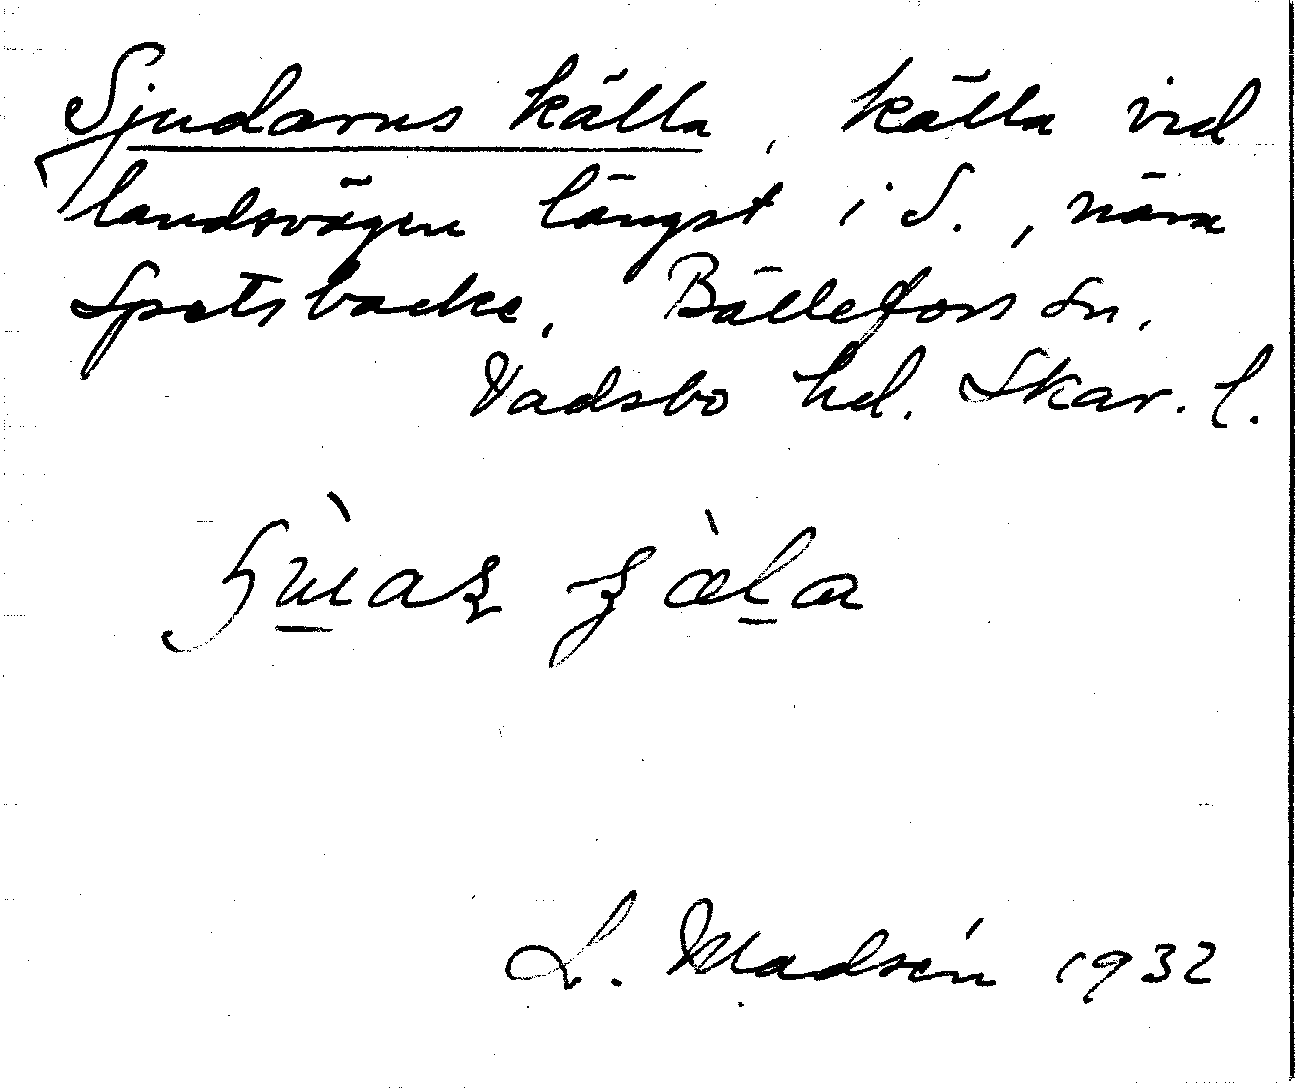 Sjudarns källa, källa vid
landsvägen längst i S., nära
Spetsbacke, Bällefors sn.
Vadsbo hd. Skar. l.
L. Madsén 1932